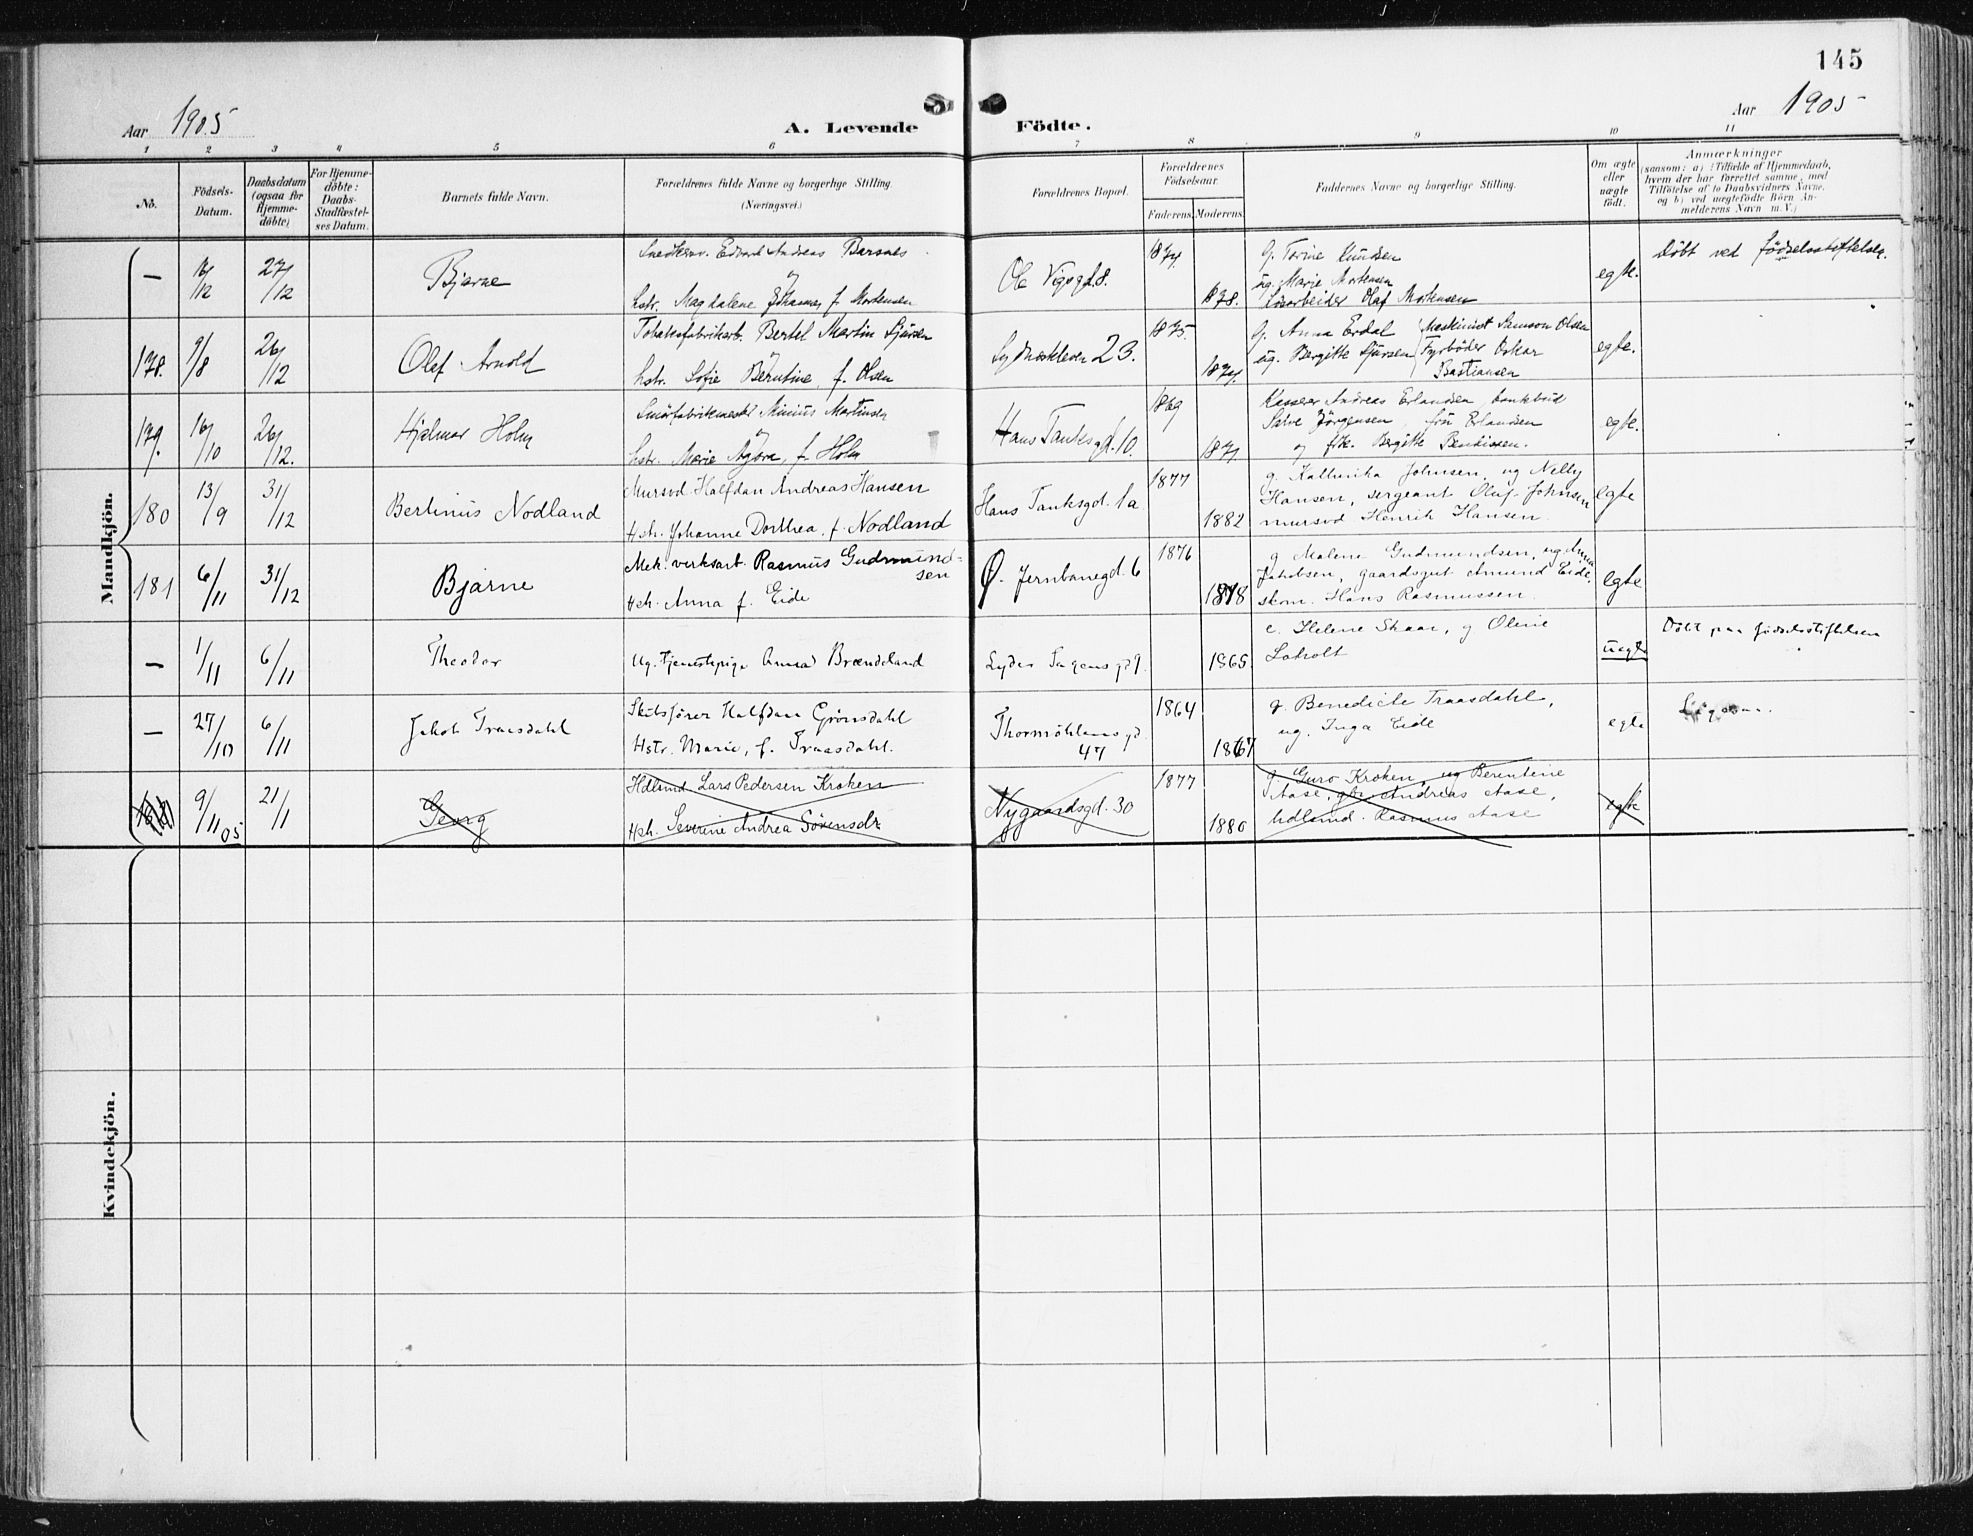 145
Aar 1905
A. Levende Födte.
Aar 1905
1 2 3 4 5 6 7 8 9 10 11
No.
Födsels-
Datum.
Daabsdatum
(ogsaa for
Hjemme-
döbte)
For Hjemme-
döbte:
Daabs-
Stadfæstel-
ses Datum.
Barnets fulde Navn.
Forældrenes fulde Navne og borgerlige Stilling.
(Næringsvei.)
Forældrenes Bopæl.
Forældrenes
Födselsaar.
Faderens. Moderens.
Faddernes Navne og borgerlige Stilling.
Om ægte
eller
uægte
födt.
Anmærkninger
(saasom: a) i Tilfælde af Hjemmedaab,
hvem der har forrettet samme, med
Tilföielse af to Daabsvidners Navne,
og b) ved uægtefödte Börn An-
melderens Navn m. V.)
Mandkjön.
— 16/12 27/12
Bjarne
Edvard Andreas Barsnes
hstr. Magdalene Johanne f. Mortensen
Ole Vigsgd. 8.
1874. 1878.
g. Torine Knudsen
ug. Marie Mortensen
Olaf Mortensen
egte.
Döbt ved Födselsstiftelsen.
178. 9/8 26/12
Olaf Arnold
Tobaksfabrikarb. Bertel Martin Sjursen
hstr. Sofie Berntine, f. Olsen
23.
1875. 1874.
g. Anna Erdal Maskinist Samson Olsen
ug. Bergitte Sjursen Fyrböder Oskar
Bastiansen
egte.
179. 16/10 26/12.
Hjalmar Holm
Smörfabrikmester Minius Martinsen
hstr. Marie, f. Holm
Hans Tanksgd. 10.
1869 1871
Kasserer Andreas Erlandsen, bankbud
Salve Jörgensen, fru Erlandsen
og frk. Bergitte Bendixsen.
egte.
180 13/9 31/12
Bertinus Nodland
Mursvd. Halfdan Andreas Hansen
Hstr. Johanne Dorthea, f. Nodland
Hans Tanksgd. 1a
1877 1882
g. Kathinka Johnsen, ug Nelly
Hansen, sergeant Oluf Johnsen
mursvd Henrik Hansen.
egte
181 6/11 31/12
Bjarne
Mek. verksarb. Rasmus Gudmund-
sen
Hstr. Anna f. Eide
Ø. Jernbanegd. 6
1876 1878
g. Malene Gudmundsen, ug Anna
Jakobsen, gaardsgut Amund Eide,
skom. Hans Rasmussen.
egte
— 1/11 6/11
Theodor
Ug. Tjenestepige Anna Brændeland
Lyder Sagensgd 9.
1865.
e. Helene Skaar, g Oline
Loholt
uegte
Döbt paa födselsstiftelsen
— 27/10 6/11
Jakob Traasdahl
Skibsförer Halfdan Grönsdahl
Hstr. Marie, f. Traasdahl.
Thormöhlensgd.
47
1864 1867
g. Benedicte Traasdahl,
ug. Inga Eide
egte
9/11 05 21/1
Georg
Hdlsmd Lars Pedersen Kroken
Hstr. Severine Andrea Sörensdr
Nygaardsgd. 30
1877 1880
g. Guro Kroken, ug Berentine
Aase, gbr. Andreas Aase,
hdlsmd. Rasmus Aase
egte
Kvindekjön.